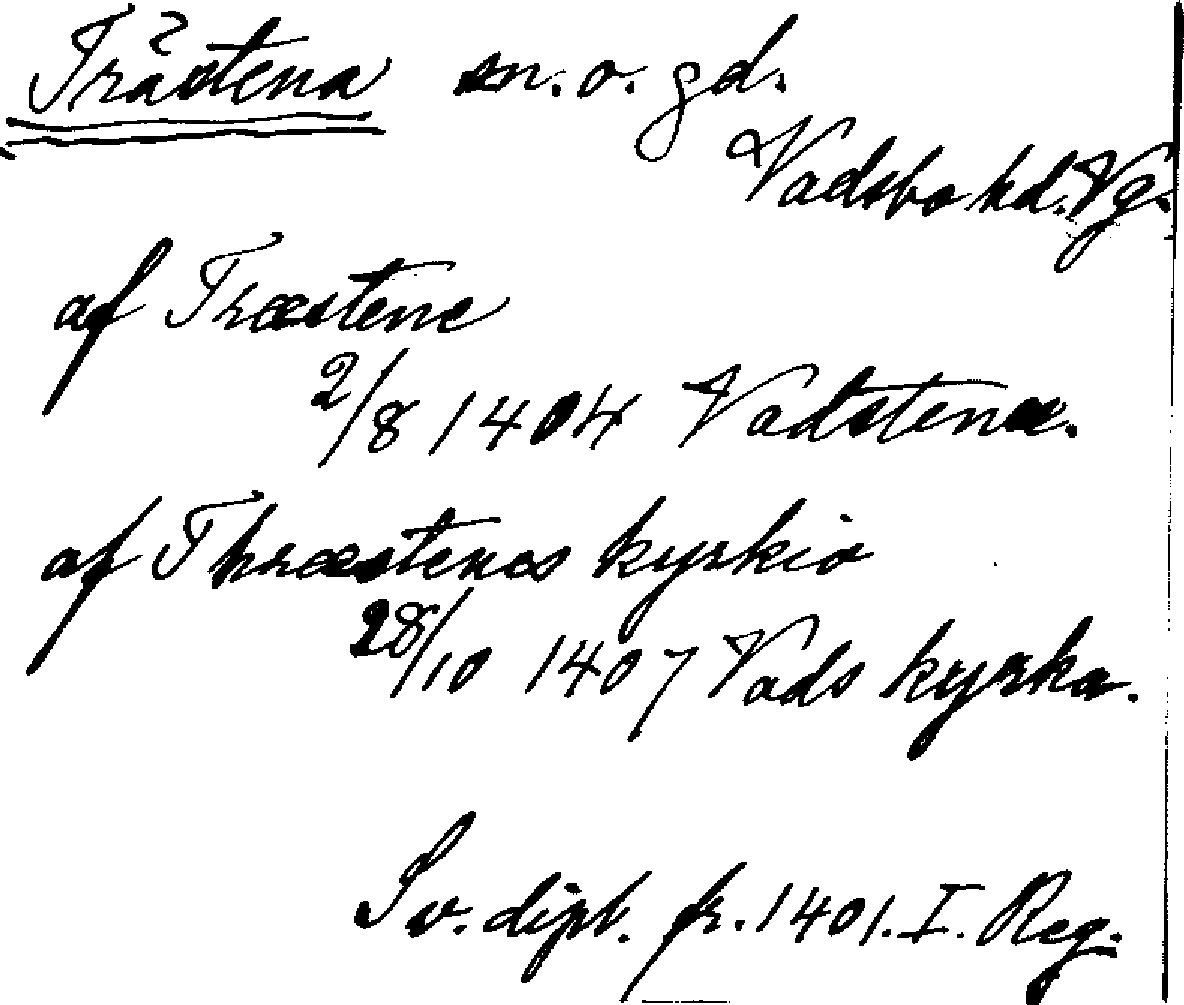 Trästena sn. o. gd.
Vadsbo hd. Vg.
af Træstene
2/8 1404 Vadstena.
af Thræstenes kyrkio
28/10 1407 Vads kyrka.
Sv. dipl. fr. 1401. I. Reg.